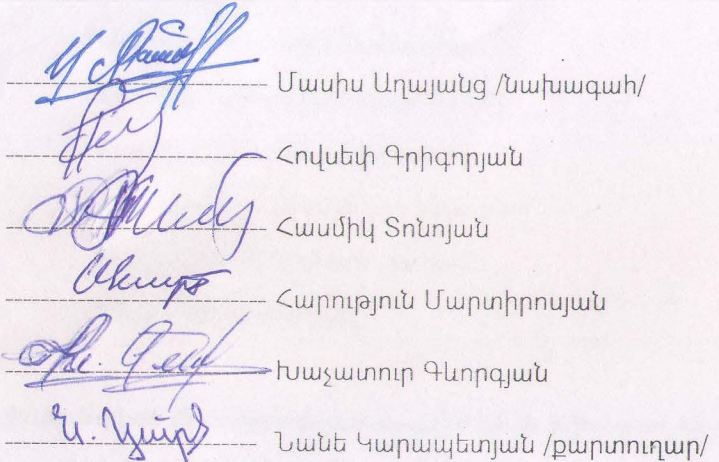 Մասիս Աղայանց /նախագահ/
Հովսեփ Գրիգորյան
Հասմիկ Տոնոյան
Հարություն Մարտիրոսյան
Խաչատուր Գևորգյան
Նանե Կարապետյան /քարտուղար/